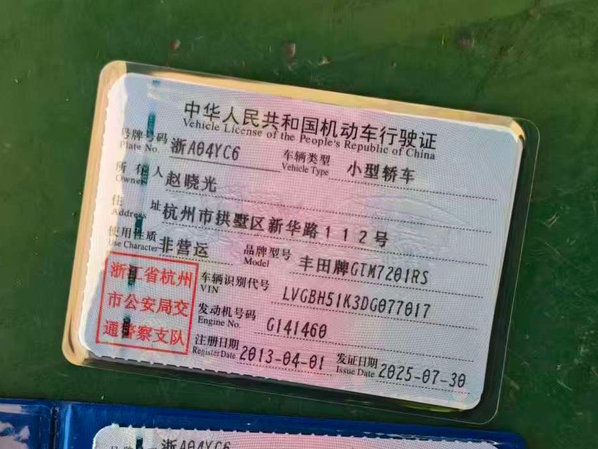 中华人民共和国机动车行驶证
Vehicle License of the People's Republic of China
号牌号码 浙A04YC6 车辆类型 小型轿车
Plate No. Vehicle Type
所有人 赵晓光
Owner
住址 杭州市拱墅区新华路112号
Address
使用性质 非营运 品牌型号 丰田牌GTM7201RS
Use Character Model
浙江省杭州
市公安局交
通警察支队
车辆识别代号 LVGBH51K3DG077017
VIN
发动机号码 G141460
Engine No.
注册日期 2013-04-01 发证日期 2025-07-30
Register Date Issue Date
号牌号码 浙A04YC6